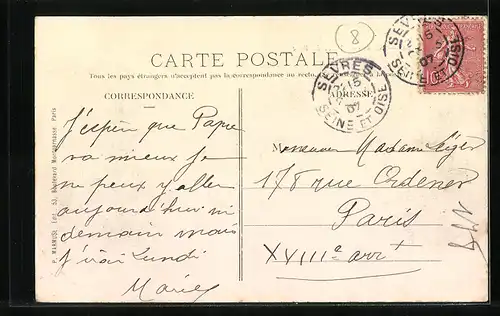 8
CARTE POSTALE
Tous les pays étrangers n'acceptent pas la correspondance au recto
CORRESPONDANCE
ADRESSE
SEVRES
15
07
SEINE ET OISE
SEVRES
15
07
SEINE ET OISE
P. MARMUSE, Edit., 53, Boulevard Montparnasse, Paris
J'espère que Papa
va mieux je
ne peux y aller
aujourd'hui ni
demain mais
j'irai Lundi
Marie
Monsieur Madame Léger
178 rue Ordener
Paris
XVIIIe arrt